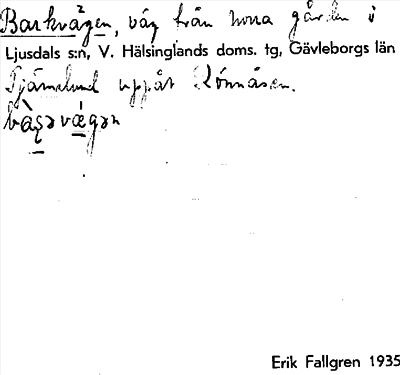 Barkvägen, väg från norra gården i
Ljusdals s:n, V. Hälsinglands doms. tg, Gävleborgs län
uppåt Rönnåsen.
Erik Fallgren 1935